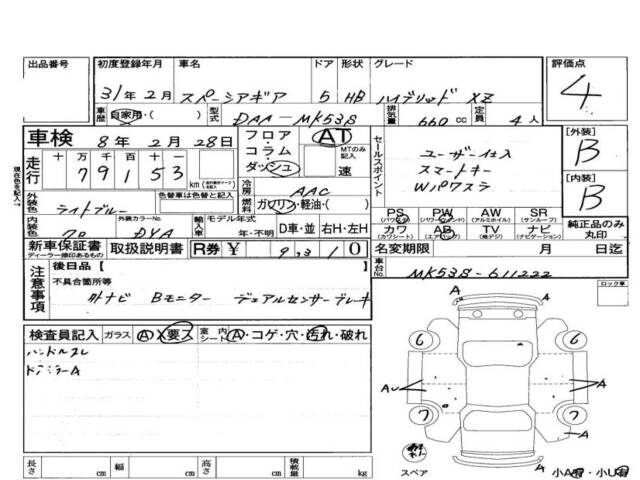 出品番号 初度登録年月 車名 ドア 形状 グレード 評価点
31年2月 スペーシアギア 5 HB ハイブリッド XZ 4
車歴 自家用・( ) 型式 DAA-MK53S 排気量 660 cc 定員 4人
車検 8年2月28日 フロア・コラム・ダッシュ AT セールスポイント [外装] B
MTのみ記入 速
ユーザー仕入
スマートキー
Wパワスラ
走行 十万千百十一
79153 km
冷房 AAC [内装] B
外装色 ライトブルー 色替車は色替と記入 燃料 ガソリン・軽油・( )
PS (パワステ) PW (パワーウインド) AW (アルミホイル) SR (サンルーフ)
内装色 クロ 外装カラーNo. DYA 輸入車 モデル年式 年・不明 D車・並 右H・左H
カワ (カワシート) AB (エアバッグ) TV (地デジ) ナビ (ナビゲーション) 純正品のみ丸印
新車保証書 ディーラー捺印あるもの 取扱説明書 R券 ¥ 9,310 名変期限 月 日迄
注意事項 後日品【 】 車台No. MK53S-611222
不具合箇所等
外ナビ Bモニター デュアルセンサーブレーキ
ロック車
検査員記入 ガラス A X要ス 室内シート A・コゲ・穴・汚れ・破れ
ハンドルスレ
ドアミラーA
A
A
6 6
AU A
7 7
スペア
A
小A有・小U有
長さ cm 幅 cm 高さ cm 積載量 kg